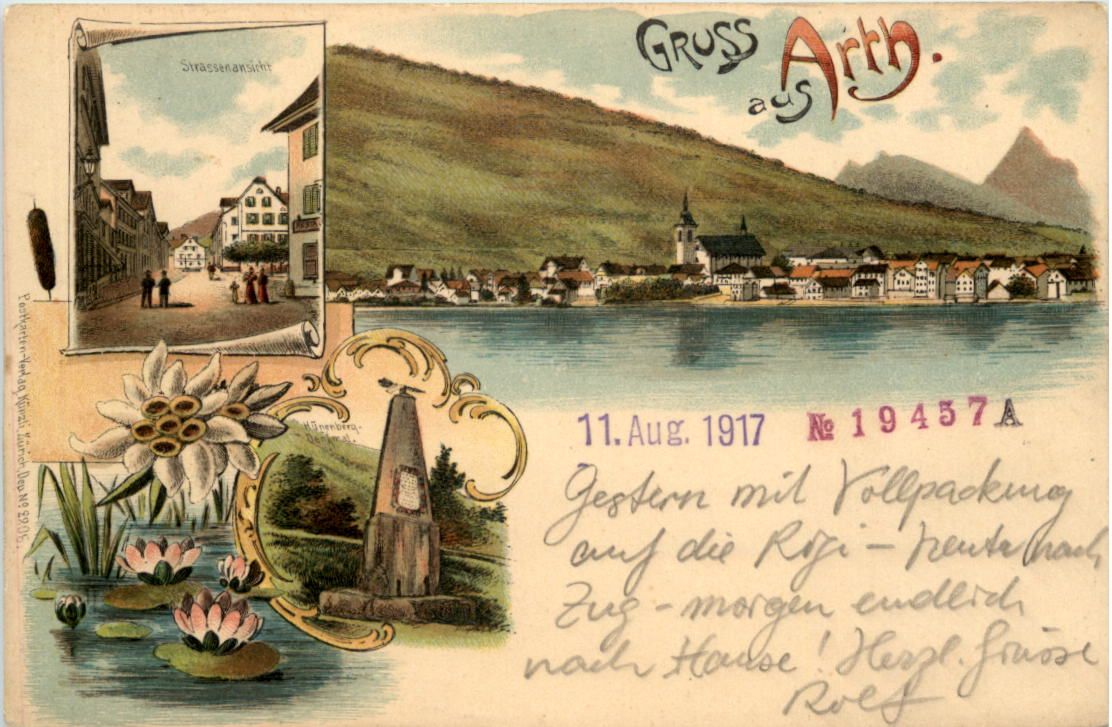 Strassenansicht
GRUSS
aus Arth.
Hünenberg-
Denkmal.
Postkarten-Verlag Künzli, Zürich, Dep. No 2905.
11. Aug. 1917 No 19457 A
Gestern mit Vollpackung
auf die Rigi – heute nach
Zug – morgen endlich
nach Hause! Herzl. Grüsse
Rolf